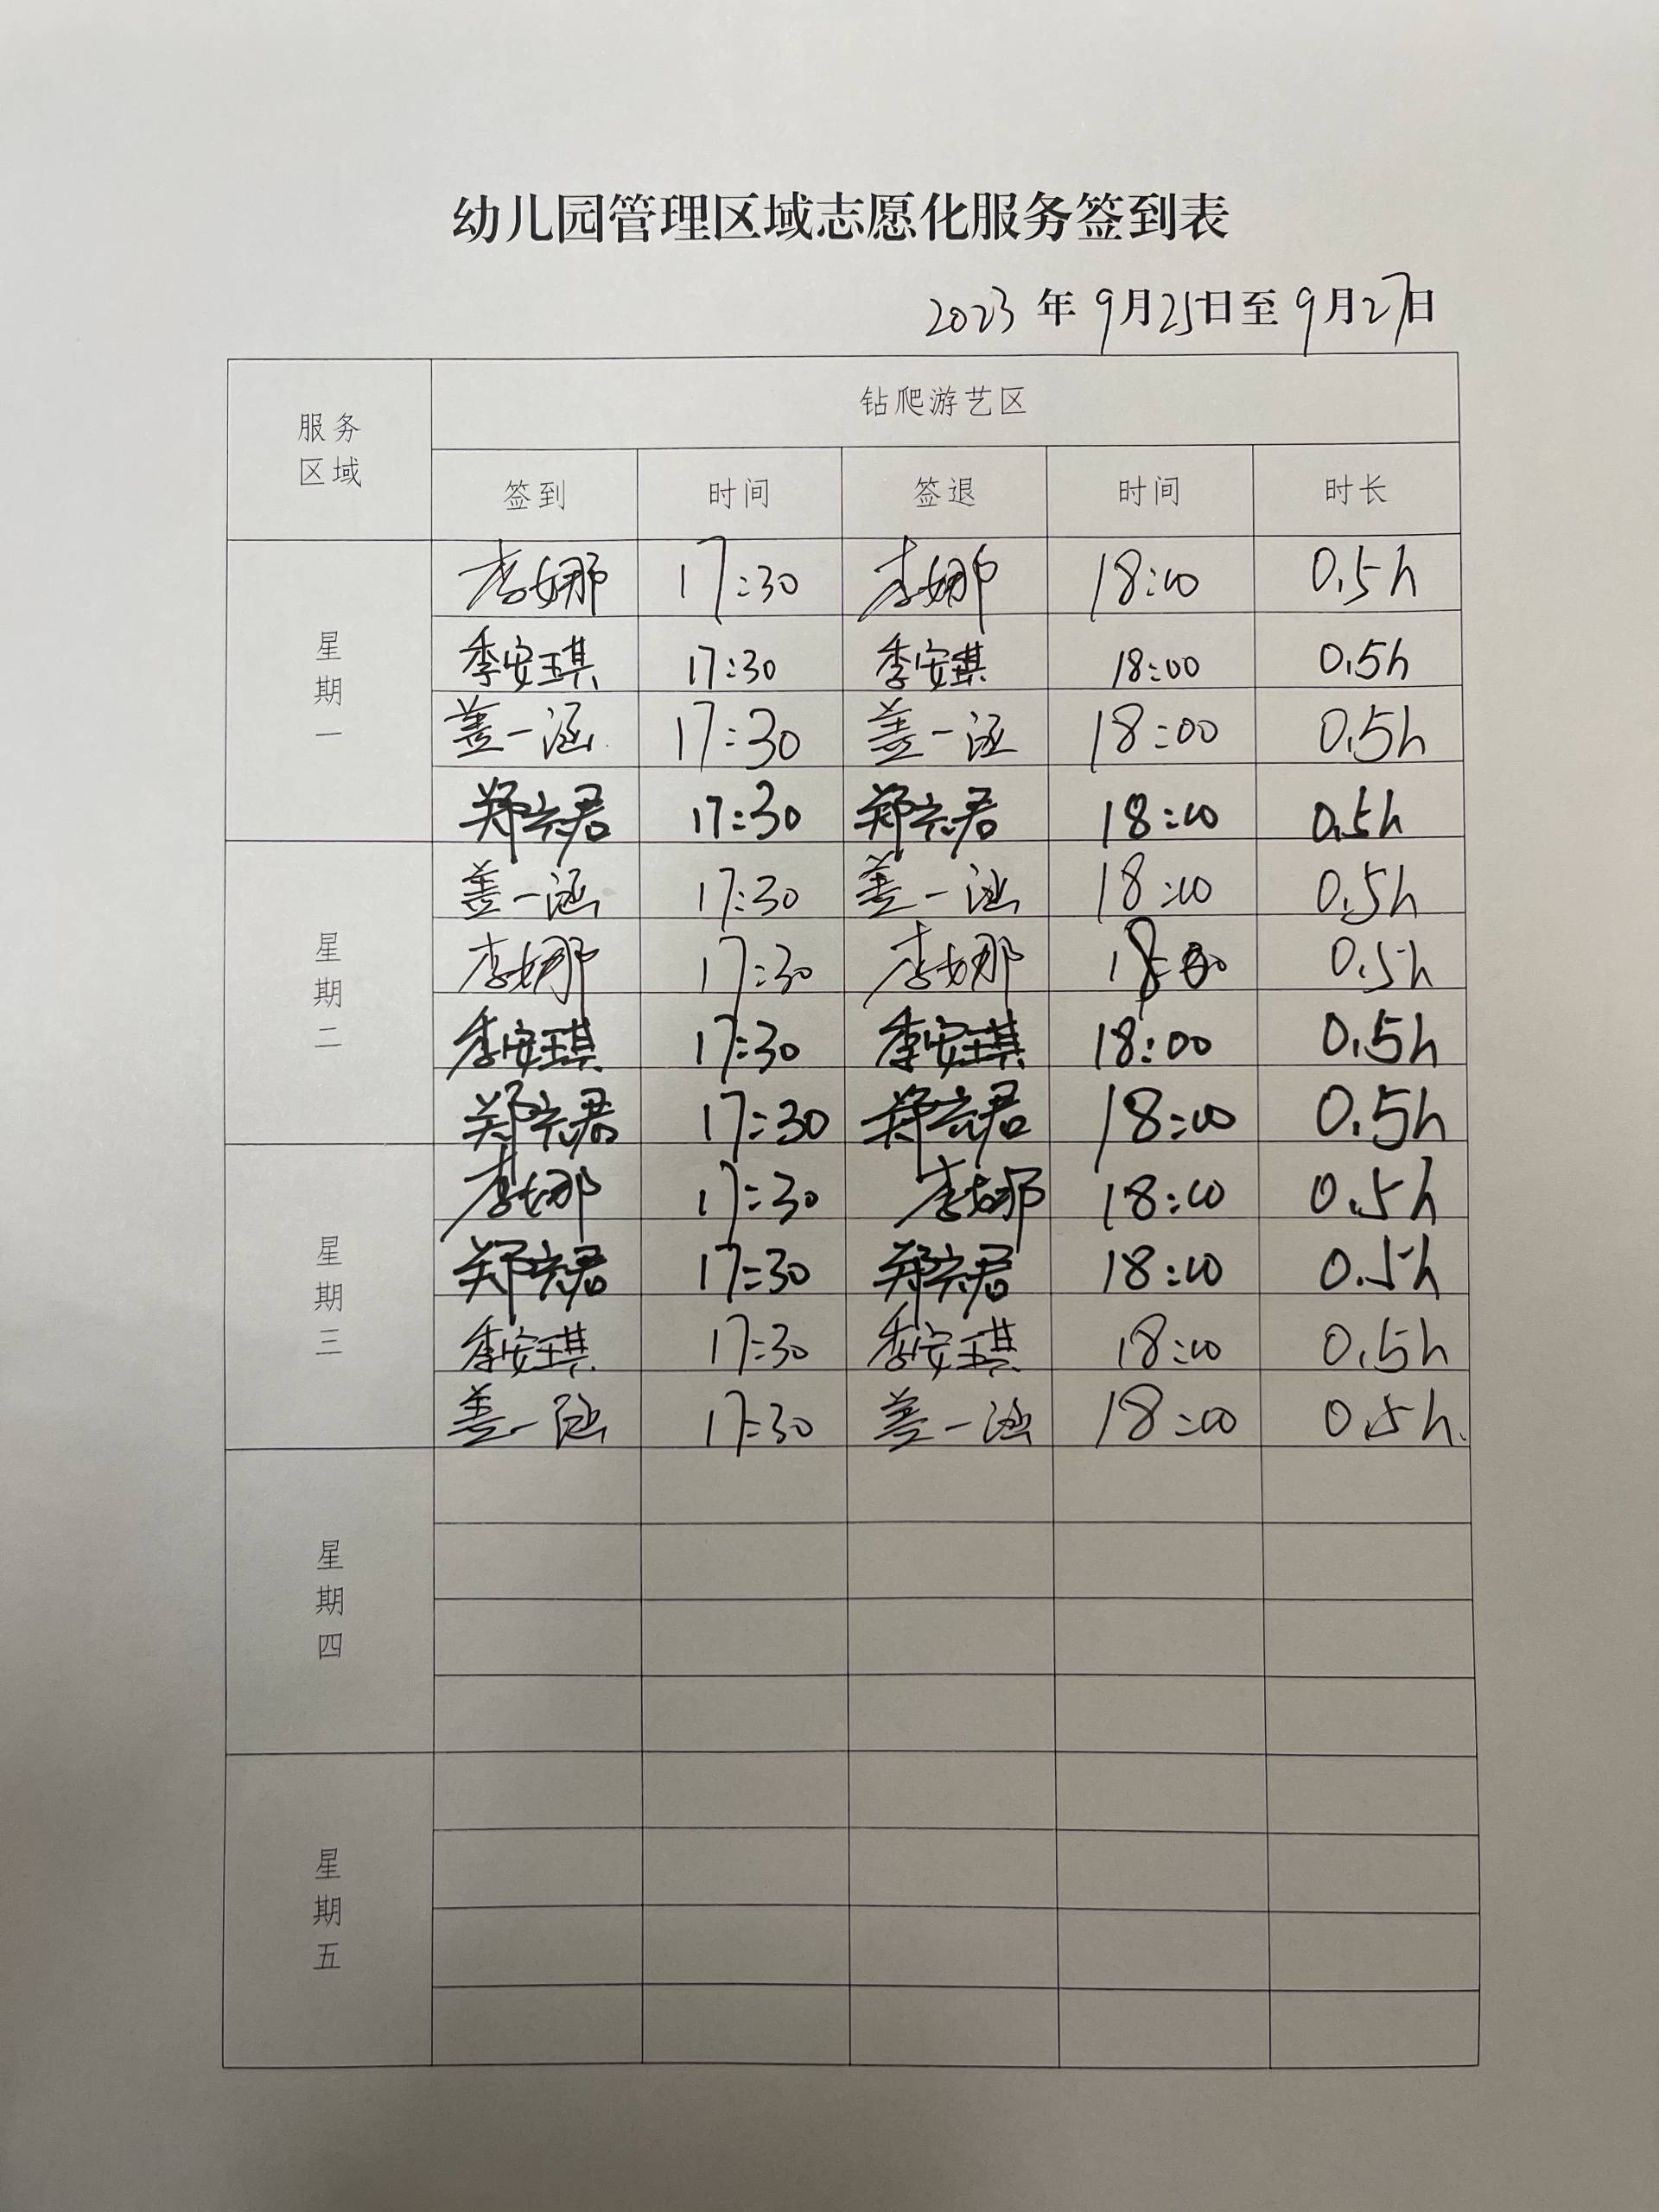 幼儿园管理区域志愿化服务签到表
2023 年 9月25日至 9月27日
服务区域 钻爬游艺区
签到 时间 签退 时间 时长
星期一
李娜 17:30 李娜 18:00 0.5h
季安琪 17:30 季安琪 18:00 0.5h
盖一涵 17:30 盖一涵 18:00 0.5h
郑君 17:30 郑君 18:00 0.5h
星期二
盖一涵 17:30 盖一涵 18:00 0.5h
李娜 17:30 李娜 18:00 0.5h
季安琪 17:30 季安琪 18:00 0.5h
郑君 17:30 郑君 18:00 0.5h
星期三
李娜 17:30 李娜 18:00 0.5h
郑君 17:30 郑君 18:00 0.5h
季安琪 17:30 季安琪 18:00 0.5h
盖一涵 17:30 盖一涵 18:00 0.5h.
星期四
星期五